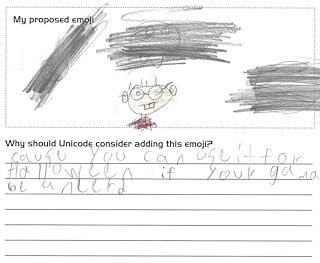 My proposed emoji
Why should Unicode consider adding this emoji?
cause you can use it for
Halloween if your gana
be a nerd